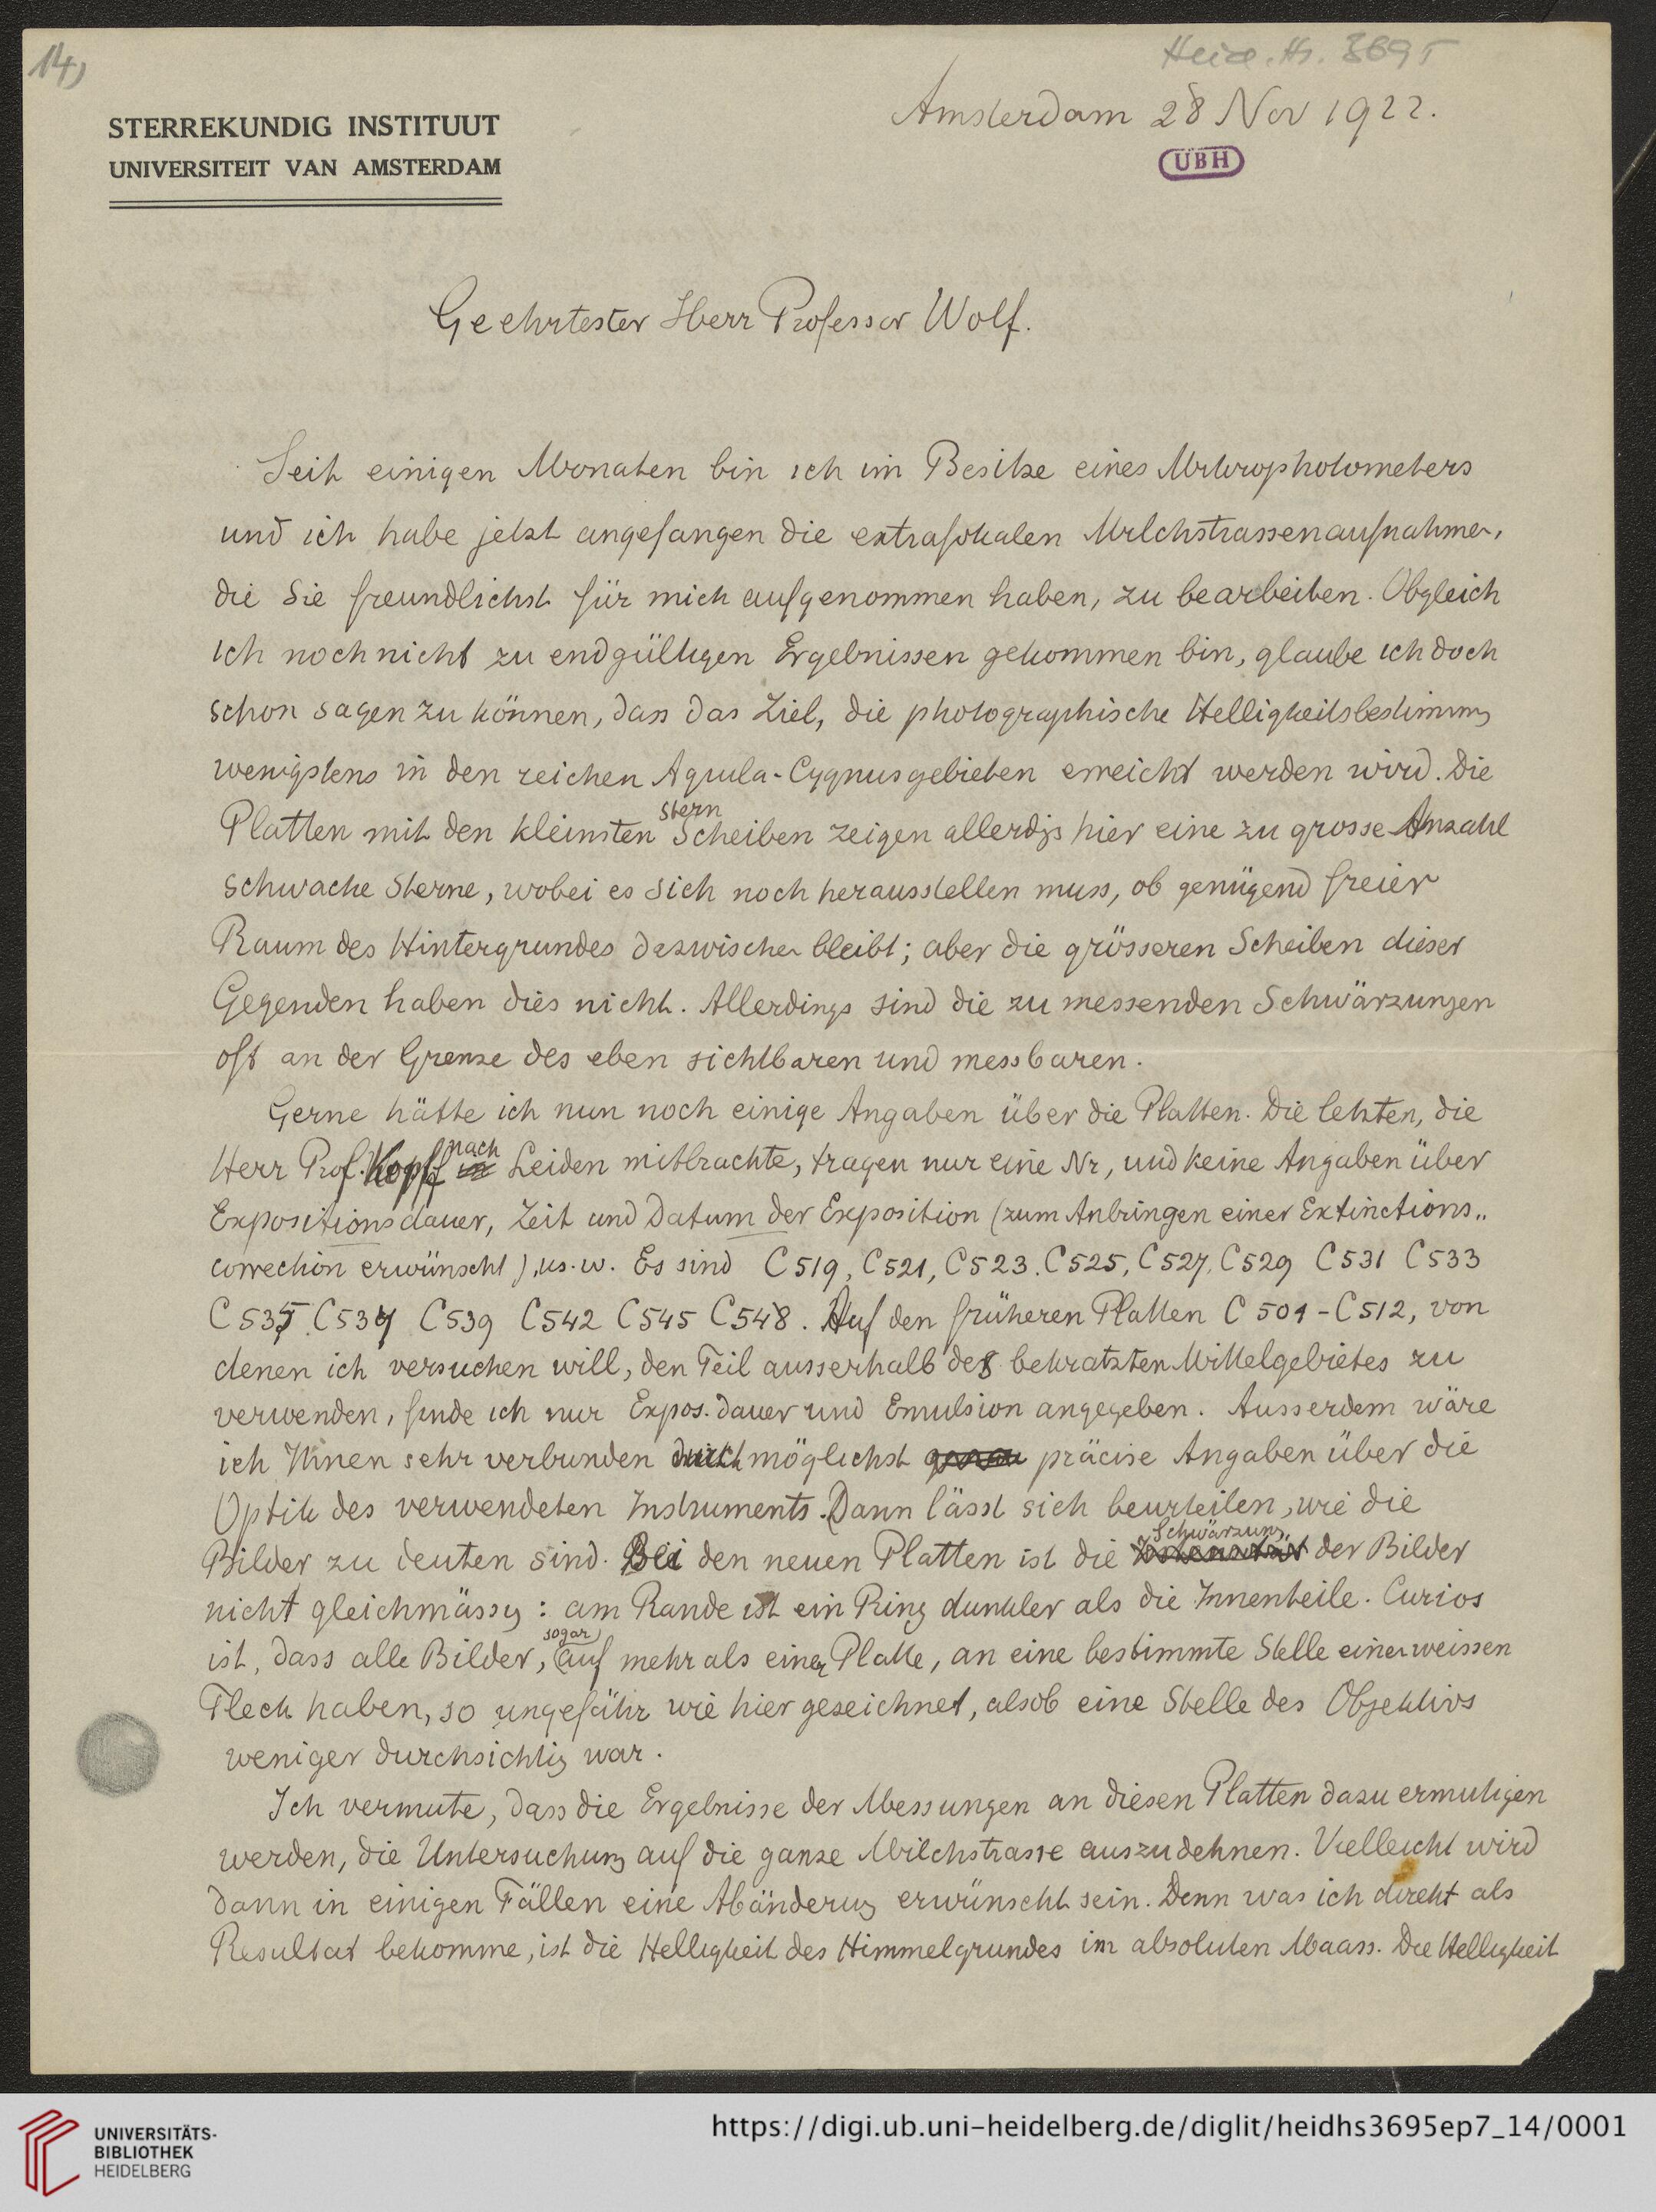 14)
Heid. Hs. 3695
STERREKUNDIG INSTITUUT
UNIVERSITEIT VAN AMSTERDAM
Amsterdam 28 Nov 1922.
UBH
Geehrtester Herr Professor Wolf.
Seit einigen Monaten bin ich im Besitze eines Mikrophotometers
und ich habe jetzt angefangen die extrafokalen Milchstrassenaufnahmen,
die Sie freundlichst für mich aufgenommen haben, zu bearbeiten. Obgleich
ich noch nicht zu endgültigen Ergebnissen gekommen bin, glaube ich doch
schon sagen zu können, dass das Ziel, die photographische Helligkeitsbestimmung
wenigstens in den reichen Aquila-Cygnusgebieten erreicht werden wird. Die
Platten mit den kleinsten Sternscheiben zeigen allerdgs hier eine zu grosse Anzahl
schwache Sterne, wobei es sich noch herausstellen muss, ob genügend freier
Raum des Hintergrundes dazwischen bleibt; aber die grösseren Scheiben dieser
Gegenden haben dies nicht. Allerdings sind die zu messenden Schwärzungen
oft an der Grenze des eben sichtbaren und messbaren.
Gerne hätte ich nun noch einige Angaben über die Platten. Die letzten, die
Herr Prof. Kopff nach Leiden mitbrachte, tragen nur eine Nr, und keine Angaben über
Expositionsdauer, Zeit und Datum der Exposition (zum Anbringen einer Extinctions-
correction erwünscht), us.w. Es sind C519, C521, C523. C525, C527, C529 C531 C533
C535 C537 C539 C542 C545 C548. Auf den früheren Platten C 501-C512, von
denen ich versuchen will, den Teil ausserhalb des bekratzten Mittelgebietes zu
verwenden, finde ich nur Expos. dauer und Emulsion angegeben. Ausserdem wäre
ich Ihnen sehr verbunden durch möglichst präcise Angaben über die
Optik des verwendeten Instruments. Dann lässt sich beurteilen, wie die
Bilder zu deuten sind. Bei den neuen Platten ist die Schwärzung der Bilder
nicht gleichmässig: am Rande ist ein Ring dunkler als die Innenteile. Curios
ist, dass alle Bilder, sogar auf mehr als einer Platte, an eine bestimmte Stelle einen weissen
Fleck haben, so ungefähr wie hier gezeichnet, alsob eine Stelle des Objektivs
weniger durchsichtig war.
Ich vermute, dass die Ergebnisse der Messungen an diesen Platten dazu ermutigen
werden, die Untersuchung auf die ganze Milchstrasse auszudehnen. Vielleicht wird
dann in einigen Fällen eine Abänderung erwünscht sein. Denn was ich direkt als
Resultat bekomme, ist die Helligkeit des Himmelgrundes im absoluten Maass. Die Helligkeit
UNIVERSITÄTS-
BIBLIOTHEK
HEIDELBERG
https://digi.ub.uni-heidelberg.de/diglit/heidhs3695ep7_14/0001